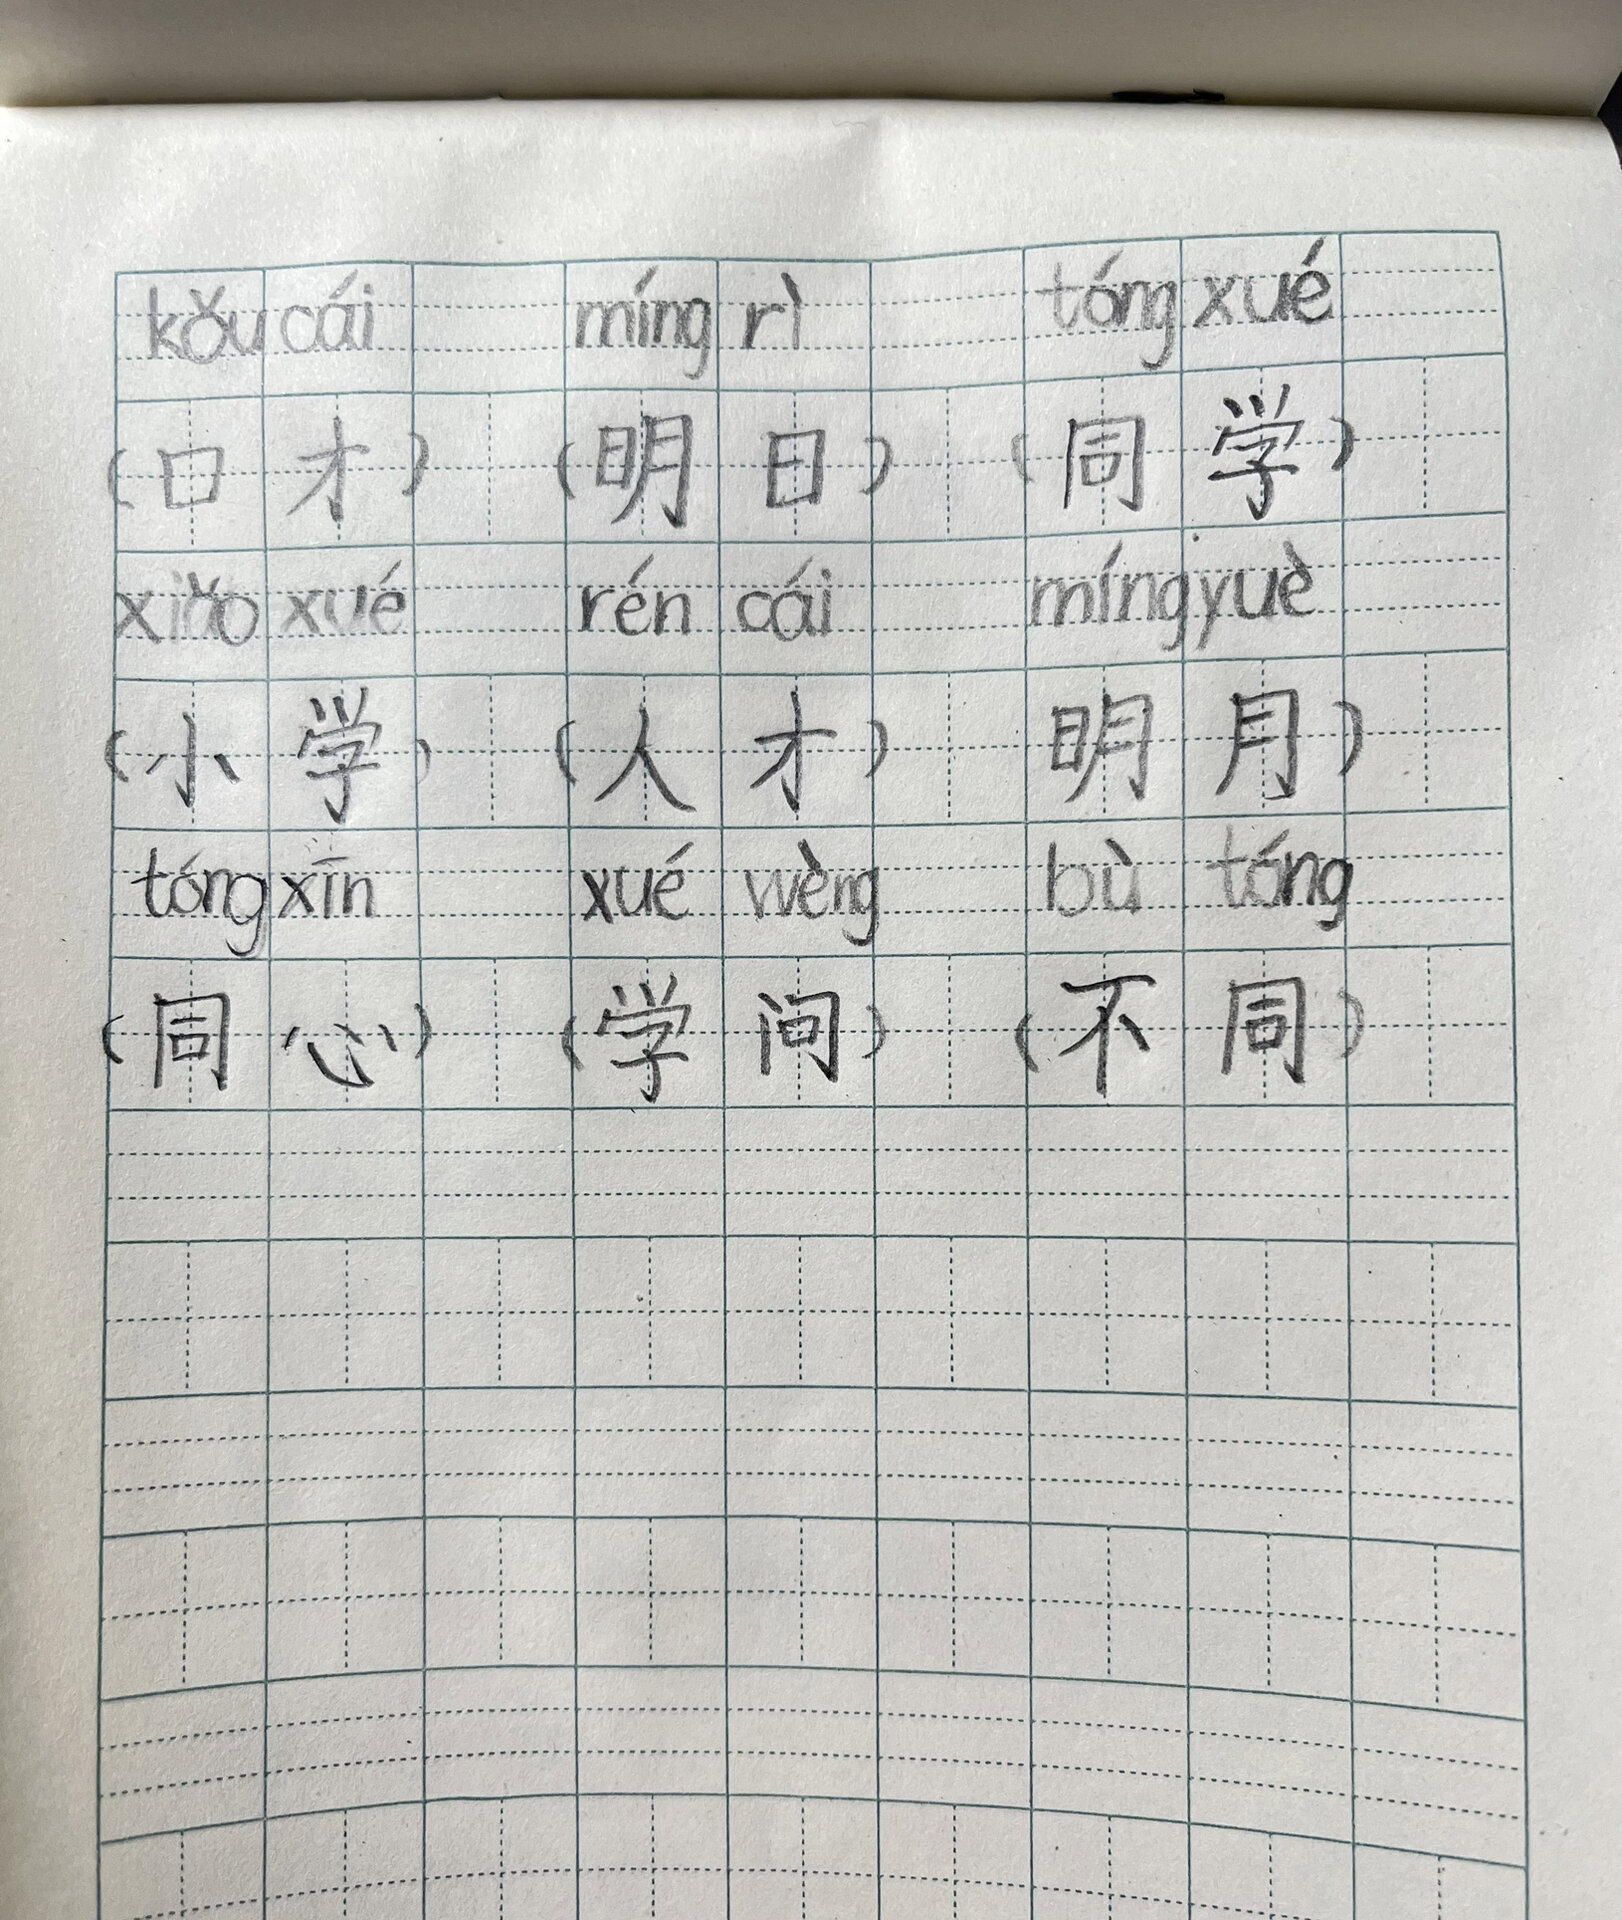 kǒu cái míng rì tóng xué
(口才) (明日) (同学)
xiǎo xué rén cái míng yuè
(小学) (人才) 明月)
tóng xīn xué wèng bù tóng
(同心) (学问) (不同)